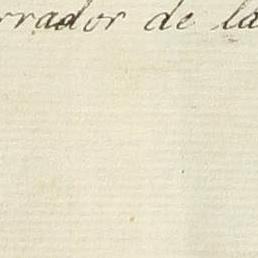 rrador de la